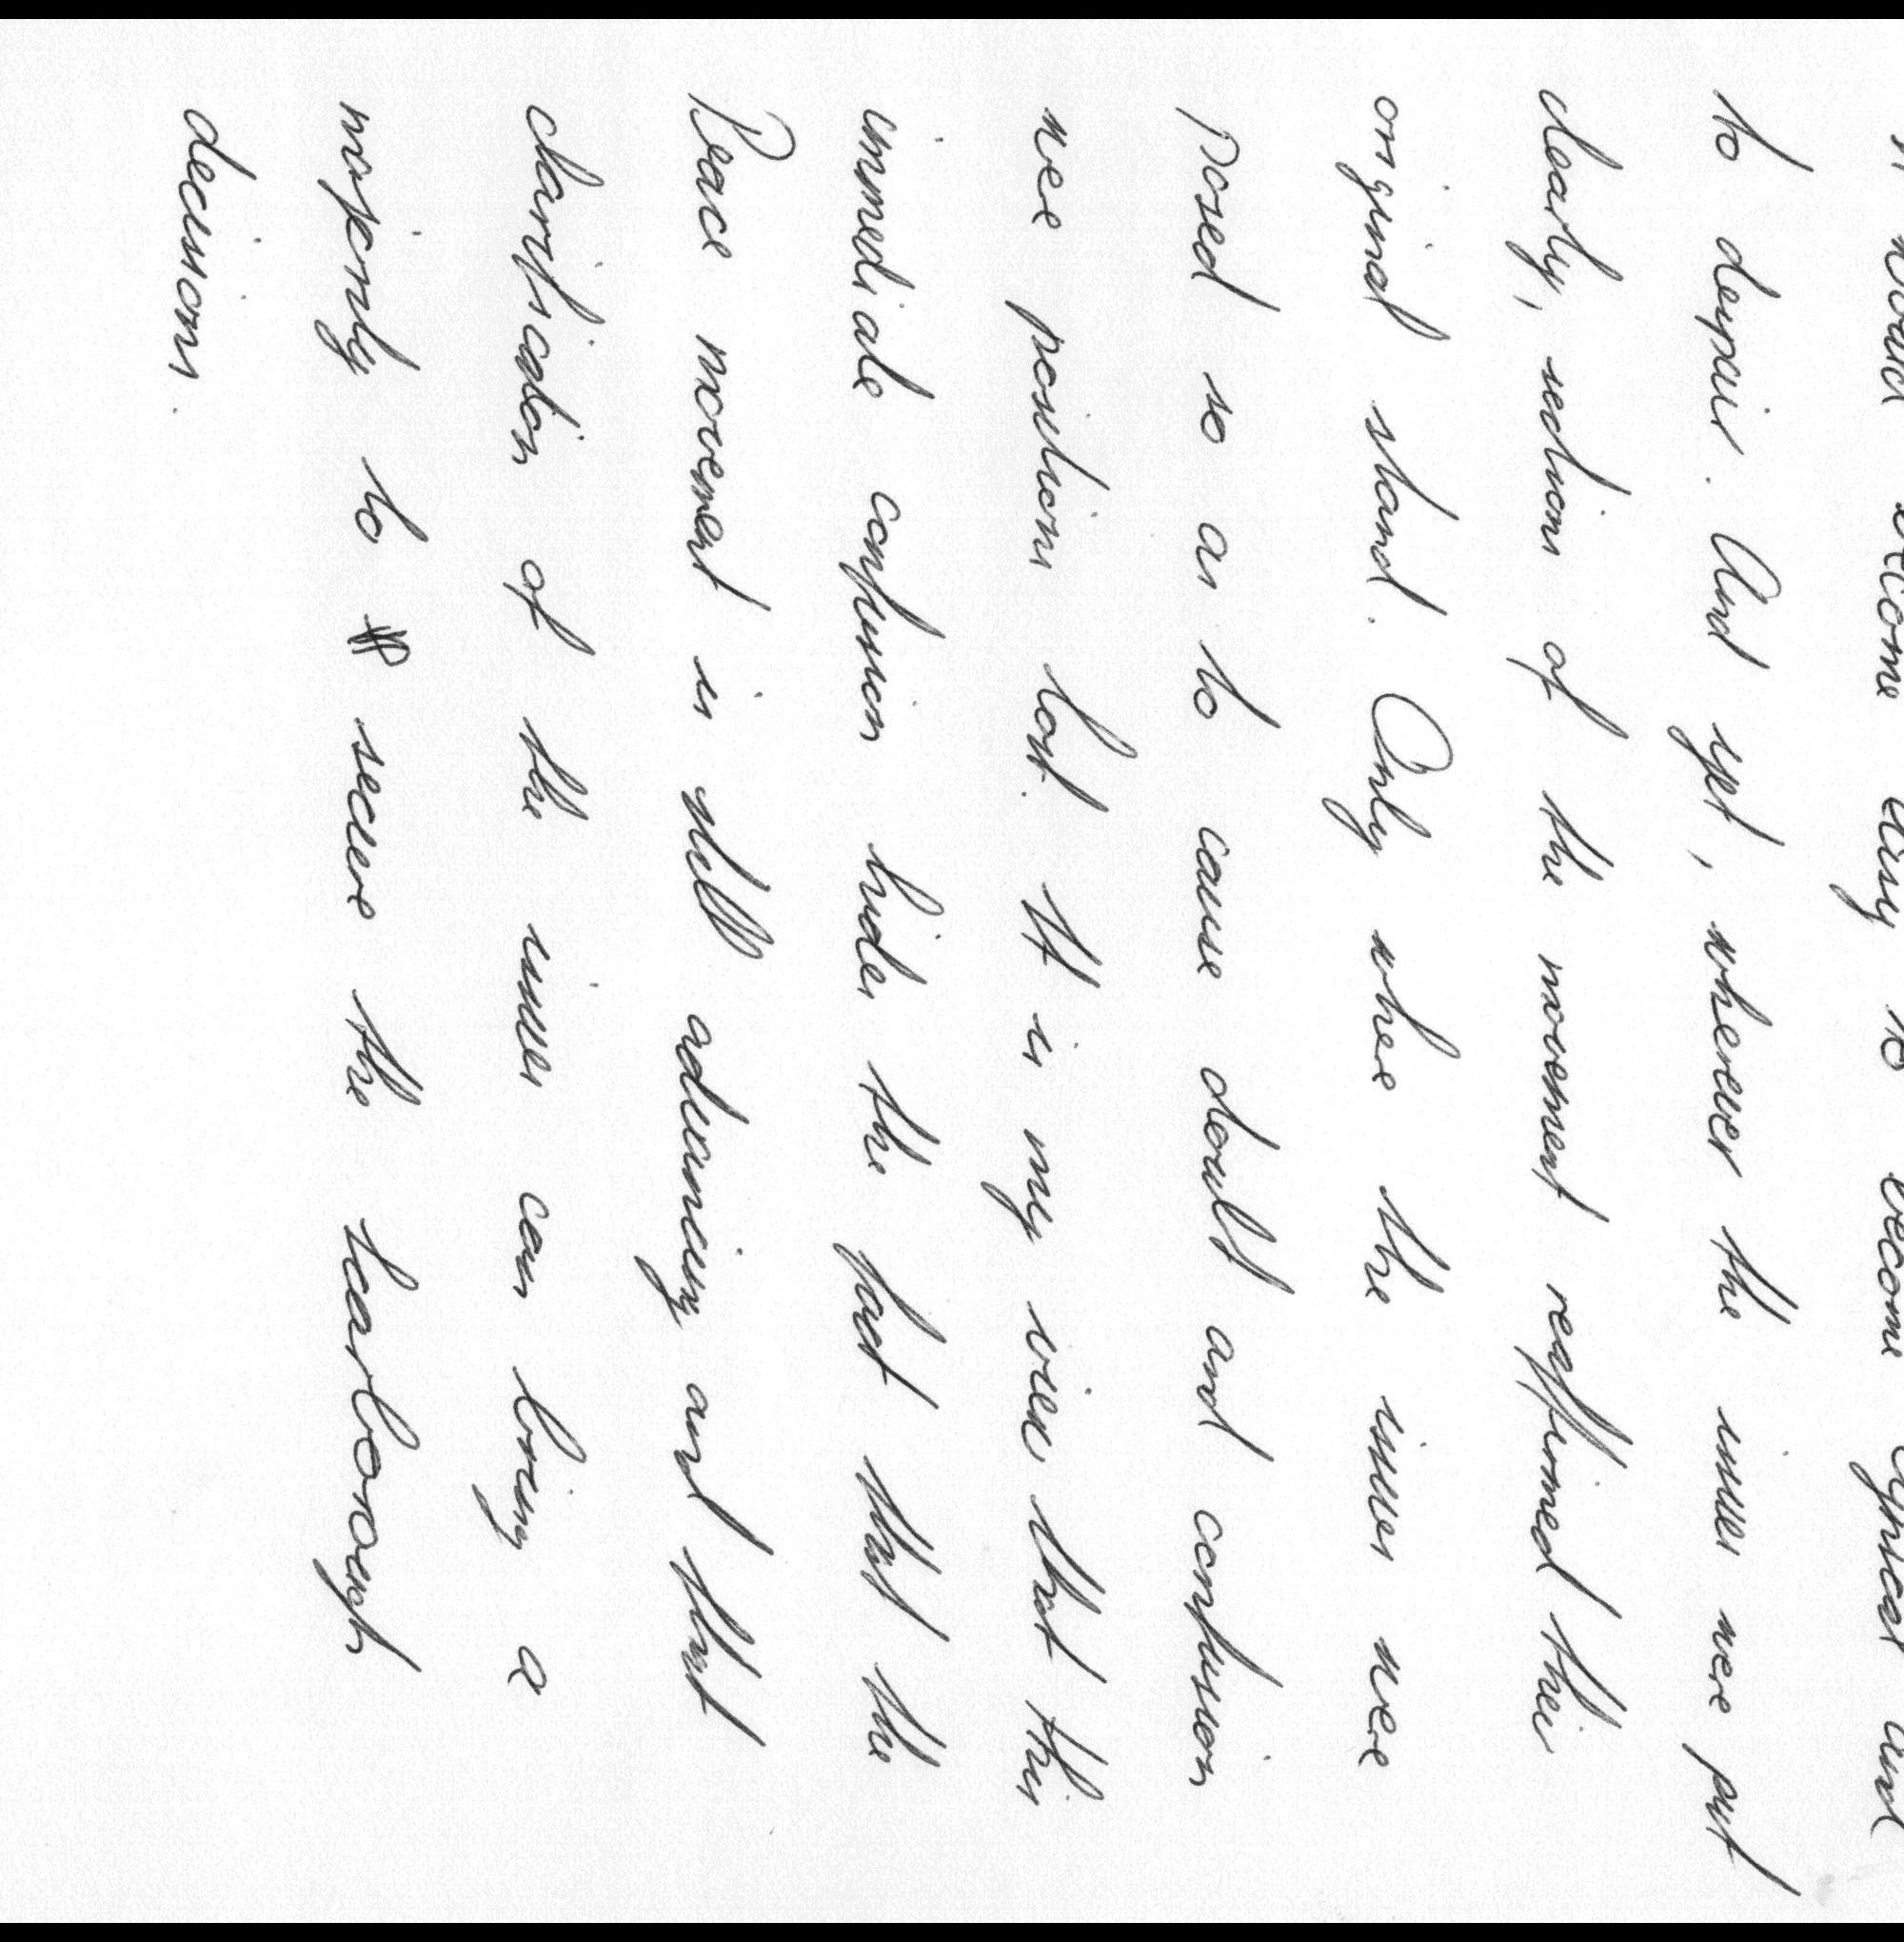 it would become easy to become cynical and
to despair. And yet, wherever the issues were put
clearly, sections of the movement reaffirmed their
original stand. Only where the issues were
posed so as to cause doubt and confusion
were positions lost. It is my view that this
immediate confusion hides the fact that the
Peace movement is still advancing and that
clarification of the issues can bring a
majority to secure the Scarborough
decisions.